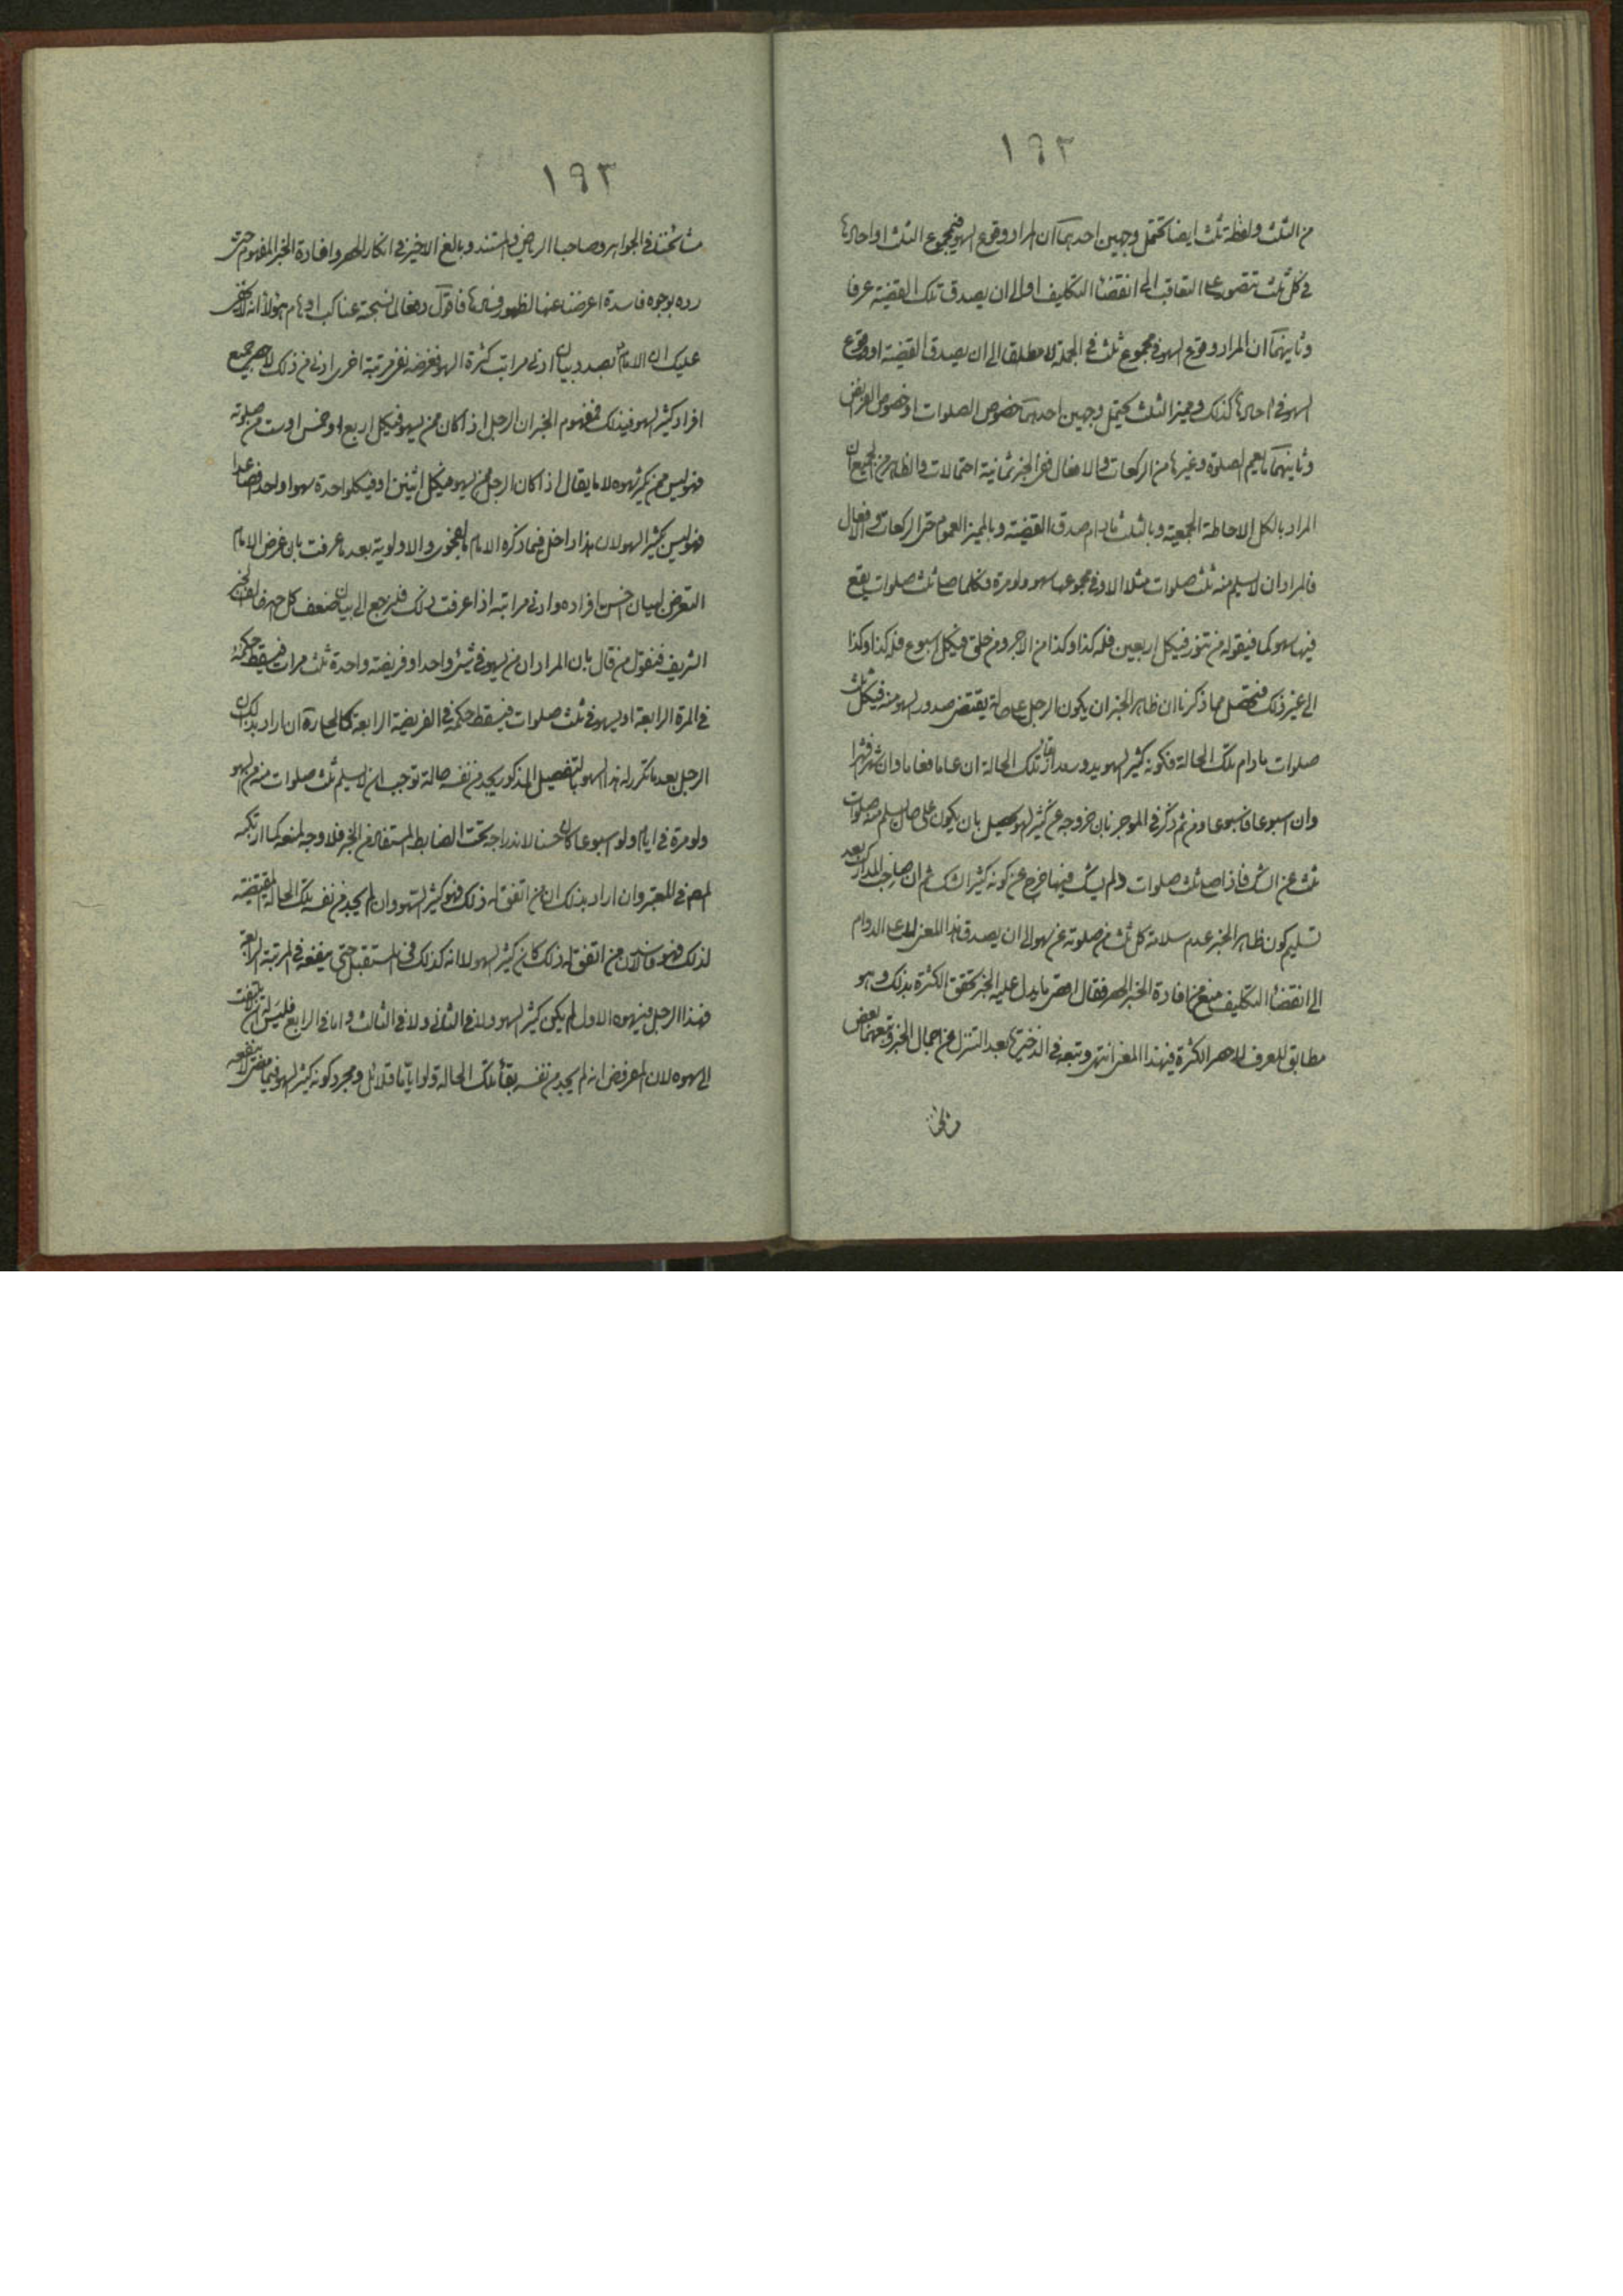 ١٩٢
من الثلث ولفظة ثلث ايضا تحتمل وجهين احدهما ان المراد وقوع السهو في مجموع الثلث او احادها
في كل ثلث تتصور على التعاقب الى انقضاء التكليف او الى ان يصدق تلك القضية عرفا
وثانيهما ان المراد وقوع السهو في مجموع ثلث في الجملة لا مطلقا الى ان يصدق القضية او وقوع
السهو في احادها كذلك ومميز الثلث يحتمل وجهين احدهما خصوص الصلوات او خصوص الفرايض
وثانيهما ما يعم الصلوة وغيرها من الركعات والافعال ففي الخبر ثمانية احتمالات والظاهر من الجميع ان
المراد بالكل الاحاطة الجمعية وبالثلث مادام صدق القضية وبالمميز العموم حتى الركعات والافعال
فالمراد ان لا يسلم منه ثلث صلوات مثلا الا وفي مجموعها سهو ولو مرة فكلما صلى ثلث صلوات يقع
فيها سهو كما في قوله من تنور في كل اربعين فله كذا وكذا من الاجر ومن حلق في كل اسبوع فله كذا وكذا
الى غير ذلك فتحصل مما ذكرنا ان ظاهر الخبر ان يكون الرجل على حالة يقتضي صدور السهو منه في كل ثلث
صلوات مادام تلك الحالة فكونه كثير السهو يدور مدار تلك الحالة ان عاما فعاما وان شهرا فشهرا
وان اسبوعا فاسبوعا ومن ثم ذكر في الموجز بان خروجه عن كثير السهو يحصل بان يكون على حال يسلم منه صلوات
ثلث عن الشك فاذا صلى ثلث صلوات ولم يشك فيها خرج عن كونه كثير الشك ثم ان صاحب المدارك بعد
تسليم كون ظاهر الخبر عدم سلامة كل ثلث من صلوته عن سهو الى ان يصدق هذا المعنى لا على الدوام
الى انقضاء التكليف منع من افادة الخبر الحصر فقال اقصى ما يدل عليه الخبر تحقق الكثرة بذلك وهو
مطابق للعرف لا حصر الكثرة في هذا المعنى انتهى وتبعه في الذخيرة بعد التنزل عن اجمال الخبر وتبعهما بعض
١٩٣
مشائخنا في الجواهر وصاحبا الرياض والمستند وبالغ الاخير في انكار الحصر وافادة الخبر المفهوم حتى
رده بوجوه فاسدة اعرضنا عنها لظهور فسادها فاقول دفعا لما نسجته عناكب اوهام هؤلاء انه لا يخفى
عليك ان الامام بصدد بيان ادنى مراتب كثرة السهو فغرضه نفي مرتبة اخرى ادنى من ذلك لا حصر جميع
افراد كثير السهو في ذلك فمفهوم الخبر ان الرجل اذا كان ممن يسهو في كل اربع او خمس او ست من صلوته
فهو ليس ممن كثر سهوه لا ما يقال اذا كان الرجل ممن يسهو في كل اثنين او في كل واحدة سهوا واحدا فصاعدا
فهو ليس بكثير السهو لان هذا داخل فيما ذكره الامام بالفحوى والاولوية بعد ما عرفت بان غرض الامام
التعرض لبيان اخس افراده وادنى مراتبه اذا عرفت ذلك فلنرجع الى بيان ضعف كل جهة مخالف للخبر
الشريف فنقول من قال بان المراد ان من يسهو في شيء واحد او فريضة واحدة ثلث مرات فيسقط حكمه
في المرة الرابعة او يسهو في ثلث صلوات فيسقط حكمه في الفريضة الرابعة كالحلي ره ان اراد بذلك ان
الرجل بعد ما تكرر له هذا السهو بالتفصيل المذكور يجد من نفسه حالة توجب ان لا يسلم ثلث صلوات منه من السهو
ولو مرة في ايام ولو اسبوعا كان حسنا لاندراجه تحت الضابط المستفاد من الخبر فلا وجه لمنعه كما ارتكبه
المص في المعتبر وان اراد بذلك ان من اتفق له ذلك فهو كثير السهو وان لم يجد من نفسه تلك الحالة المقتضية
لذلك فهو فاسد لان من اتفق له ذلك كان كثير السهو لا انه كذلك في المستقبل حتى ينفعه في المرتبة الرابعة
فهذا الرجل في سهوه الاول لم يكن كثير السهو ولا في الثاني ولا في الثالث واما في الرابع فليس له ان لا يلتفت
الى سهوه لان المفروض انه لم يجد من نفسه بقاء تلك الحالة ولو اياما قلائل ومجرد كونه كثير السهو فيما مضى لا ينفعه